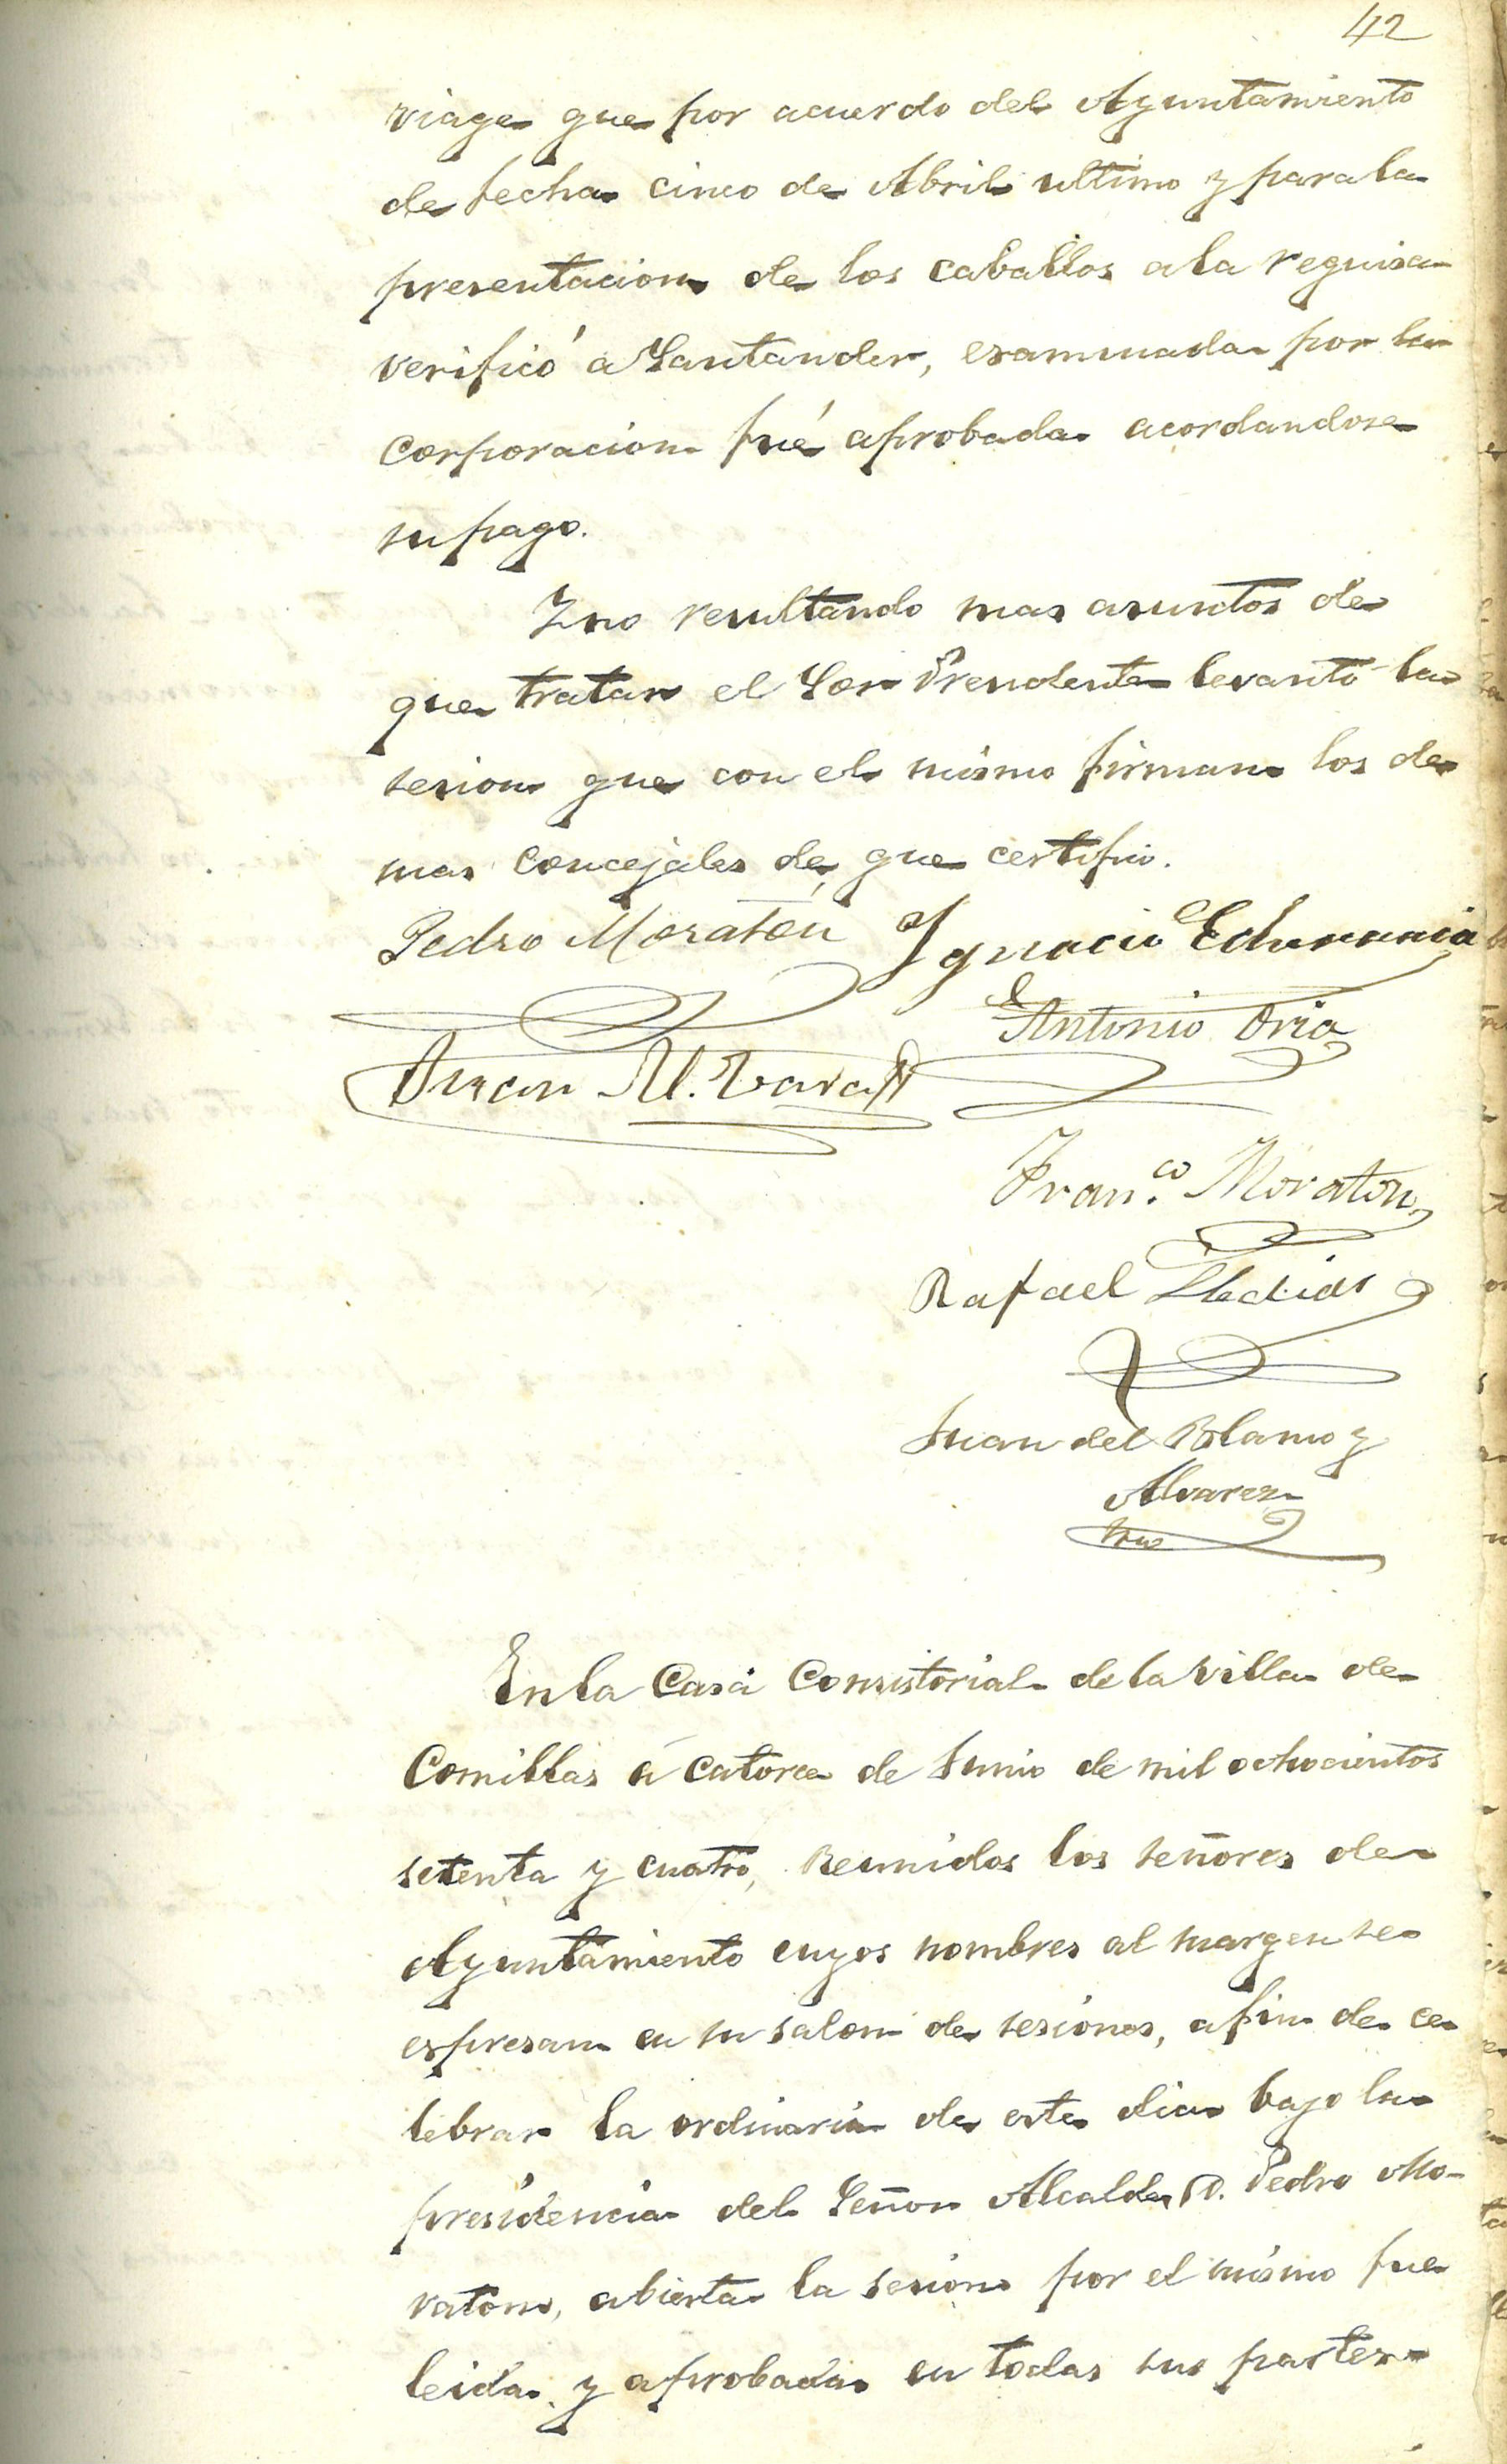 42
viage que por acuerdo del Ayuntamiento
de fecha cinco de Abril ultimo y para la
presentacion de los caballos a la requisa
verificó a Santander, examinada por la
corporacion fué aprobada acordandose
su pago.
Y no resultando mas asuntos de
que tratar el Sor Presidente levantó la
sesion que con el mismo firman los de
mas concejales de que certifico.
Pedro Moratón Ignacio
Antonio Oria
Juan M.
Fran.co Moraton
Rafael
Juan del Blanco y
Alvarez
Srio
En la Casa Consistorial de la villa de
Comillas á catorce de Junio de mil ochocientos
setenta y cuatro, Reunidos los señores de
Ayuntamiento cuyos nombres al margen se
espresan en su salon de sesiones, a fin de ce
lebrar la ordinaria de este dia bajo la
presidencia del Señor Alcalde D. Pedro Mo-
raton, abierta la sesion por el mismo fue
leida y aprobada en todas sus partes